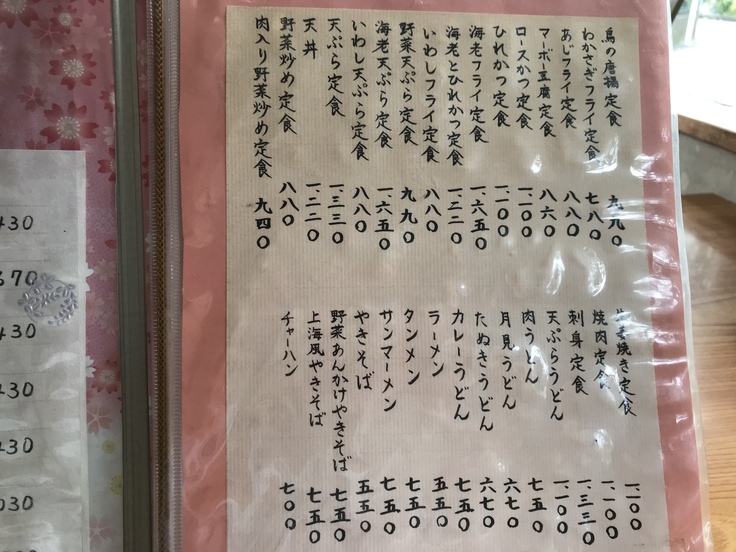 鳥の唐揚定食 九九〇
わかさぎフライ定食 七八〇
あじフライ定食 八八〇
マーボー豆腐定食 八六〇
ロースかつ定食 一、一〇〇
ひれかつ定食 一、一〇〇
海老フライ定食 一、六五〇
海老とひれかつ定食 一、二二〇
いわしフライ定食 八八〇
野菜天ぷら定食 九九〇
海老天ぷら定食 一、六五〇
いわし天ぷら定食 八八〇
天ぷら定食 一、三三〇
天丼 一、二二〇
野菜炒め定食 八八〇
肉入り野菜炒め定食 九四〇
生姜焼き定食 一、一〇〇
焼肉定食 一、一〇〇
刺身定食 一、三三〇
天ぷらうどん 一、一〇〇
肉うどん 七五〇
月見うどん 六七〇
たぬきうどん 六七〇
カレーうどん 七五〇
ラーメン 五五〇
タンメン 七五〇
サンマーメン 七五〇
やきそば 五五〇
野菜あんかけやきそば 七五〇
上海風やきそば 七五〇
チャーハン 七〇〇